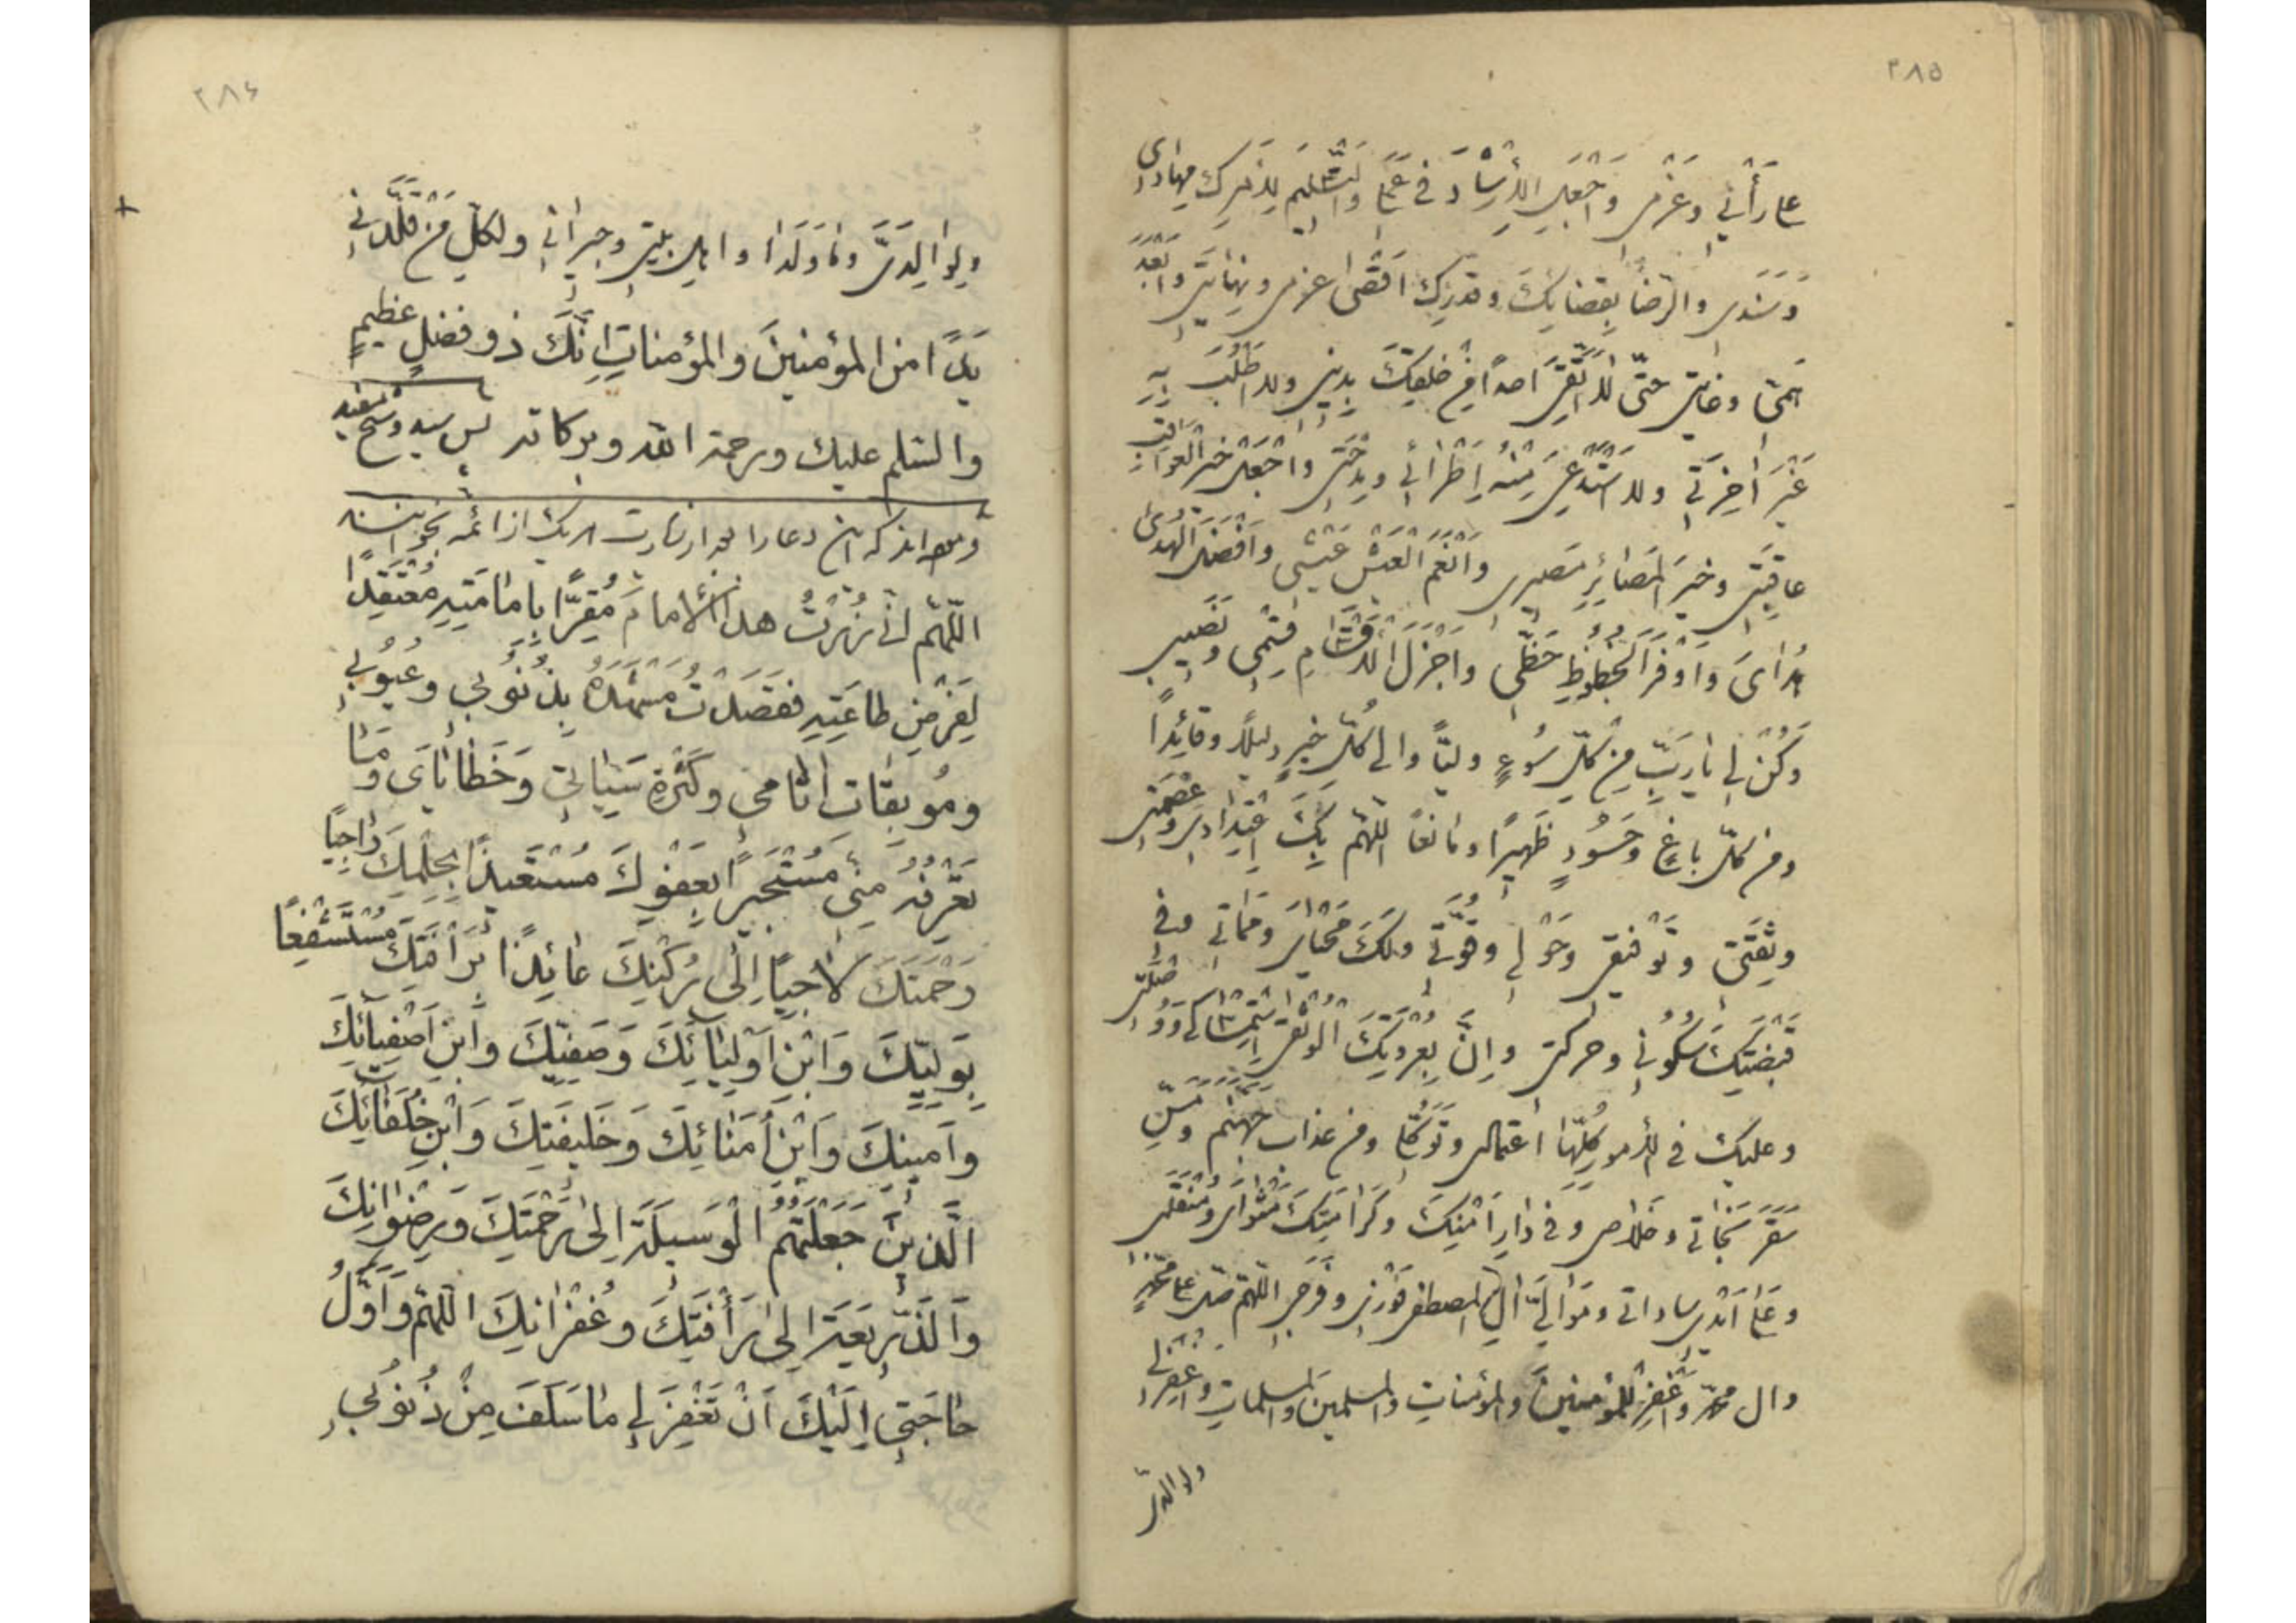 ٣٨٥
على رأيي وعزمي واجعل الإرشاد في عملي والتسليم لأمرك مهادي
وسندي والرضا بقضائك وقدرك أقصى عزمي ونهايتي وأبعد
همتي وغايتي حتى لا أتقي أحدا من خلقك بديني ولا أطلب به
غير آخرتي ولا أستدعي منه إطرائي ومدحتي واجعل خير العواقب
عاقبتي وخير المصائر مصيري وأنعم العيش عيشي وأفضل الهدى
هداي وأوفر الحظوظ حظي وأجزل الأقسام قسمي ونصيبي
وكن لي يا رب من كل سوء وليا وإلى كل خير دليلا وقائدا
ومن كل باغ وحسود ظهيرا ومانعا اللهم بك اعتدادي وعصمتي
وثقتي وتوفيقي وحولي وقوتي ولك محياي ومماتي وفي
قبضتك سكوني وحركتي وإن بعروتك الوثقى استمساكي ووصلتي
وعليك في الأمور كلها اعتمادي وتوكلي ومن عذاب جهنم ومس
سقر نجاتي وخلاصي وفي دار أمنك وكرامتك مثواي ومنقلبي
وعلى أيدي ساداتي وموالي آل المصطفى فوزي وفرجي اللهم صل على محمد
وآل محمد واغفر للمؤمنين والمؤمنات والمسلمين والمسلمات واغفر لي
ولوالدي
٣٨۶
ولوالِدَيَّ وما وَلَدا واهل بيتي وجيراني ولكلّ من قَلَّدَني
يَدًا من المؤمنينَ والمؤمناتِ اِنَّكَ ذو فضلٍ عظيمٍ
والسّلم عليك ورحمة الله وبركاته پس سيد وشيخ مفيد
اين دعا را بعد از زيارت هر يك از ائمه بخوانند
اللّهُمّ اِنّي زُرْتُ هذا الاِمامَ مُقِرًّا بِاِمامَتِهِ مُعْتَقِدًا
لِفَرْضِ طاعَتِهِ فَقَصَدْتُ مَشْهَدَهُ بِذُنُوبي وعُيُوبي
ومُوبِقاتِ اثامي وكَثْرَةِ سَيِّاتي وَخَطاياىَ وَمٰا
تَعْرِفُهُ مِنّي مُسْتَجيرًا بِعَفْوِكَ مُسْتَعيذًا بِحِلْمِكَ رٰاجِيًا
رَحْمَتَكَ لاجِيًا اِلٰى رُكْنِكَ عائِذًا بِرَأفَتِكَ مُسْتَشْفِعًا
بِوَلِيِّكَ وَابْنِ اَوْلِيٰائِكَ وَصَفِيِّكَ وَابْنِ اَصْفِيٰائِكَ
وَاَمينِكَ وَابْنِ اُمَنٰائِكَ وَخَليفَتِكَ وَابْنِ خُلَفٰائِكَ
الَّذينَ جَعَلْتَهُمُ الْوَسيلَةَ اِلىٰ رَحْمَتِكَ وَرِضْوٰانِكَ
وَالذَّريعَةَ اِلىٰ رَأْفَتِكَ وَغُفْرٰانِكَ اللّهُمّ وَاَوَّلُ
حٰاجَتي اِلَيْكَ اَنْ تَغْفِرَ لي مٰا سَلَفَ مِنْ ذُنُوبي